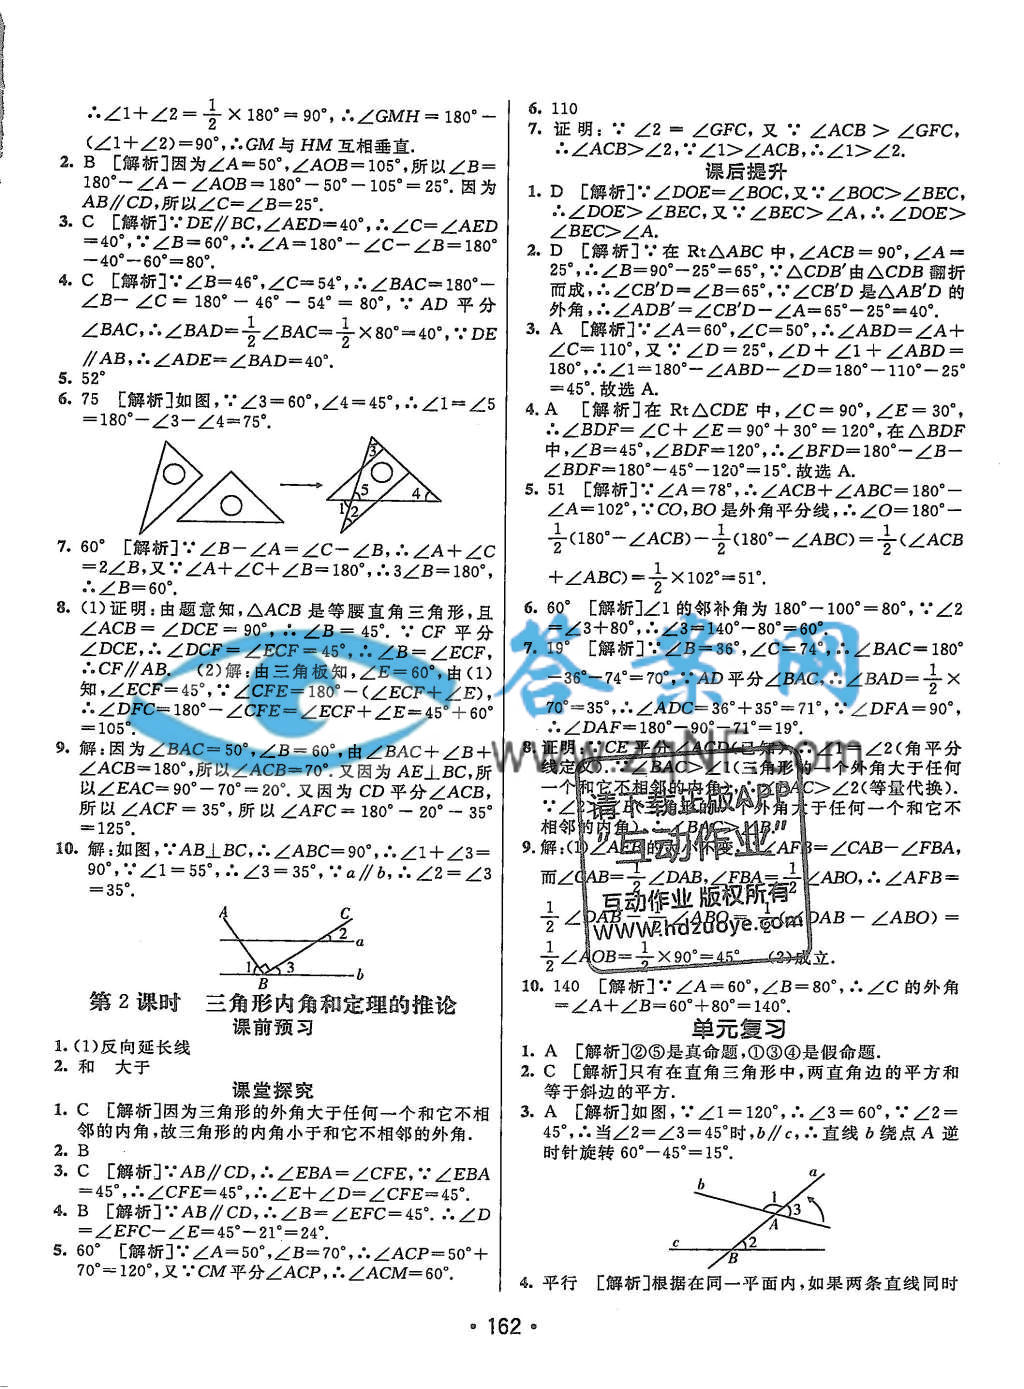 ∴∠1+∠2=1/2×180°=90°,∴∠GMH=180°-
(∠1+∠2)=90°,∴GM与HM互相垂直.
2. B [解析]因为∠A=50°,∠AOB=105°,所以∠B=
180°-∠A-∠AOB=180°-50°-105°=25°.因为
AB∥CD,所以∠C=∠B=25°.
3. C [解析]∵DE∥BC,∠AED=40°,∴∠C=∠AED
=40°,∵∠B=60°,∴∠A=180°-∠C-∠B=180°
-40°-60°=80°.
4. C [解析]∵∠B=46°,∠C=54°,∴∠BAC=180°-
∠B-∠C=180°-46°-54°=80°,∵AD平分
∠BAC,∴∠BAD=1/2∠BAC=1/2×80°=40°,∵DE
∥AB,∴∠ADE=∠BAD=40°.
5. 52°
6. 75 [解析]如图,∵∠3=60°,∠4=45°,∴∠1=∠5
=180°-∠3-∠4=75°.
3
5
4
1
2
7. 60° [解析]∵∠B-∠A=∠C-∠B,∴∠A+∠C
=2∠B,又∵∠A+∠C+∠B=180°,∴3∠B=180°,
∴∠B=60°.
8. (1)证明:由题意知,△ACB是等腰直角三角形,且
∠ACB=∠DCE=90°,∴∠B=45°.∵CF平分
∠DCE,∴∠DCF=∠ECF=45°,∴∠B=∠ECF,
∴CF∥AB. (2)解:由三角板知,∠E=60°,由(1)
知,∠ECF=45°,∵∠CFE=180°-(∠ECF+∠E),
∴∠DFC=180°-∠CFE=∠ECF+∠E=45°+60°
=105°.
9. 解:因为∠BAC=50°,∠B=60°,由∠BAC+∠B+
∠ACB=180°,所以∠ACB=70°.又因为AE⊥BC,所
以∠EAC=90°-70°=20°.又因为CD平分∠ACB,
所以∠ACF=35°,所以∠AFC=180°-20°-35°
=125°.
10. 解:如图,∵AB⊥BC,∴∠ABC=90°,∴∠1+∠3=
90°,∵∠1=55°,∴∠3=35°,∵a∥b,∴∠2=∠3
=35°.
A
C
2
a
1
3
b
B
第2课时 三角形内角和定理的推论
课前预习
1. (1)反向延长线
2. 和 大于
课堂探究
1. C [解析]因为三角形的外角大于任何一个和它不相
邻的内角,故三角形的内角小于和它不相邻的外角.
2. B
3. C [解析]∵AB∥CD,∴∠EBA=∠CFE,∵∠EBA
=45°,∴∠CFE=45°,∴∠E+∠D=∠CFE=45°.
4. B [解析]∵AB∥CD,∴∠B=∠EFC=45°.∴∠D
=∠EFC-∠E=45°-21°=24°.
5. 60° [解析]∵∠A=50°,∠B=70°,∴∠ACP=50°+
70°=120°,又∵CM平分∠ACP,∴∠ACM=60°.
6. 110
7. 证明:∵∠2=∠GFC,又∵∠ACB>∠GFC,
∴∠ACB>∠2,∵∠1>∠ACB,∴∠1>∠2.
课后提升
1. D [解析]∵∠DOE=∠BOC,又∵∠BOC>∠BEC,
∴∠DOE>∠BEC,又∵∠BEC>∠A,∴∠DOE>
∠BEC>∠A.
2. D [解析]∵在Rt△ABC中,∠ACB=90°,∠A=
25°,∴∠B=90°-25°=65°,∵△CDB′由△CDB翻折
而成,∴∠CB′D=∠B=65°,∵∠CB′D是△AB′D的
外角,∴∠ADB′=∠CB′D-∠A=65°-25°=40°.
3. A [解析]∵∠A=60°,∠C=50°,∴∠ABD=∠A+
∠C=110°,又∵∠D=25°,∠D+∠1+∠ABD=
180°,∴∠1=180°-∠ABD-∠D=180°-110°-25°
=45°.故选A.
4. A [解析]在Rt△CDE中,∠C=90°,∠E=30°,
∴∠BDF=∠C+∠E=90°+30°=120°,在△BDF
中,∠B=45°,∠BDF=120°,∴∠BFD=180°-∠B-
∠BDF=180°-45°-120°=15°.故选A.
5. 51 [解析]∵∠A=78°,∴∠ACB+∠ABC=180°-
∠A=102°,∵CO,BO是外角平分线,∴∠O=180°-
1/2(180°-∠ACB)-1/2(180°-∠ABC)=1/2(∠ACB
+∠ABC)=1/2×102°=51°.
6. 60° [解析]∠1的邻补角为180°-100°=80°,∵∠2
=∠3+80°,∴∠3=140°-80°=60°.
7. 19° [解析]∵∠B=36°,∠C=74°,∴∠BAC=180°
-36°-74°=70°,∵AD平分∠BAC,∴∠BAD=1/2×
70°=35°,∴∠ADC=36°+35°=71°,∵∠DFA=90°,
∴∠DAF=180°-90°-71°=19°.
8. 证明:∵CE平分∠ACD(已知),∴∠1=∠2(角平分
线定义).∵∠BAC>∠1(三角形的一个外角大于任何
一个和它不相邻的内角),∴∠BAC>∠2(等量代换).
∵∠2>∠B(三角形的一个外角大于任何一个和它不
相邻的内角),∴∠BAC>∠B.
9. 解:(1)∠AFB的大小不变,∵∠AFB=∠CAB-∠FBA,
而∠CAB=1/2∠DAB,∠FBA=1/2∠ABO,∴∠AFB=
1/2∠DAB-1/2∠ABO=1/2(∠DAB-∠ABO)=
1/2∠AOB=1/2×90°=45° (2)成立.
10. 140 [解析]∵∠A=60°,∠B=80°,∴∠C的外角
=∠A+∠B=60°+80°=140°.
单元复习
1. A [解析]②⑤是真命题,①③④是假命题.
2. C [解析]只有在直角三角形中,两直角边的平方和
等于斜边的平方.
3. A [解析]如图,∵∠1=120°,∴∠3=60°,∵∠2=
45°,∴当∠2=∠3=45°时,b∥c,∴直线b绕点A逆
时针旋转60°-45°=15°.
a
b
1
3
A
c
2
B
4. 平行 [解析]根据在同一平面内,如果两条直线同时
答案网
www.zqnf.com
请下载正版APP
"互动作业"
互动作业 版权所有
WWW.hdzuoye.com
• 162 •